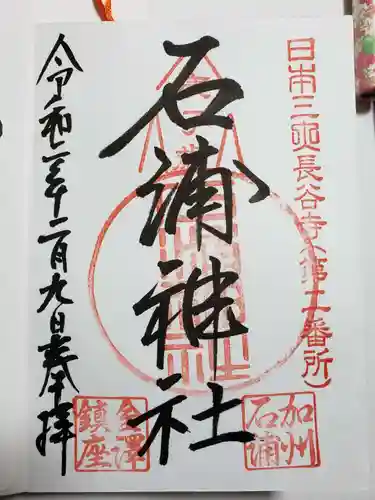 日本三 長谷寺(第二番所)
石浦神社
加州
石浦
令和二年二月九日奉拝
金澤
鎮座